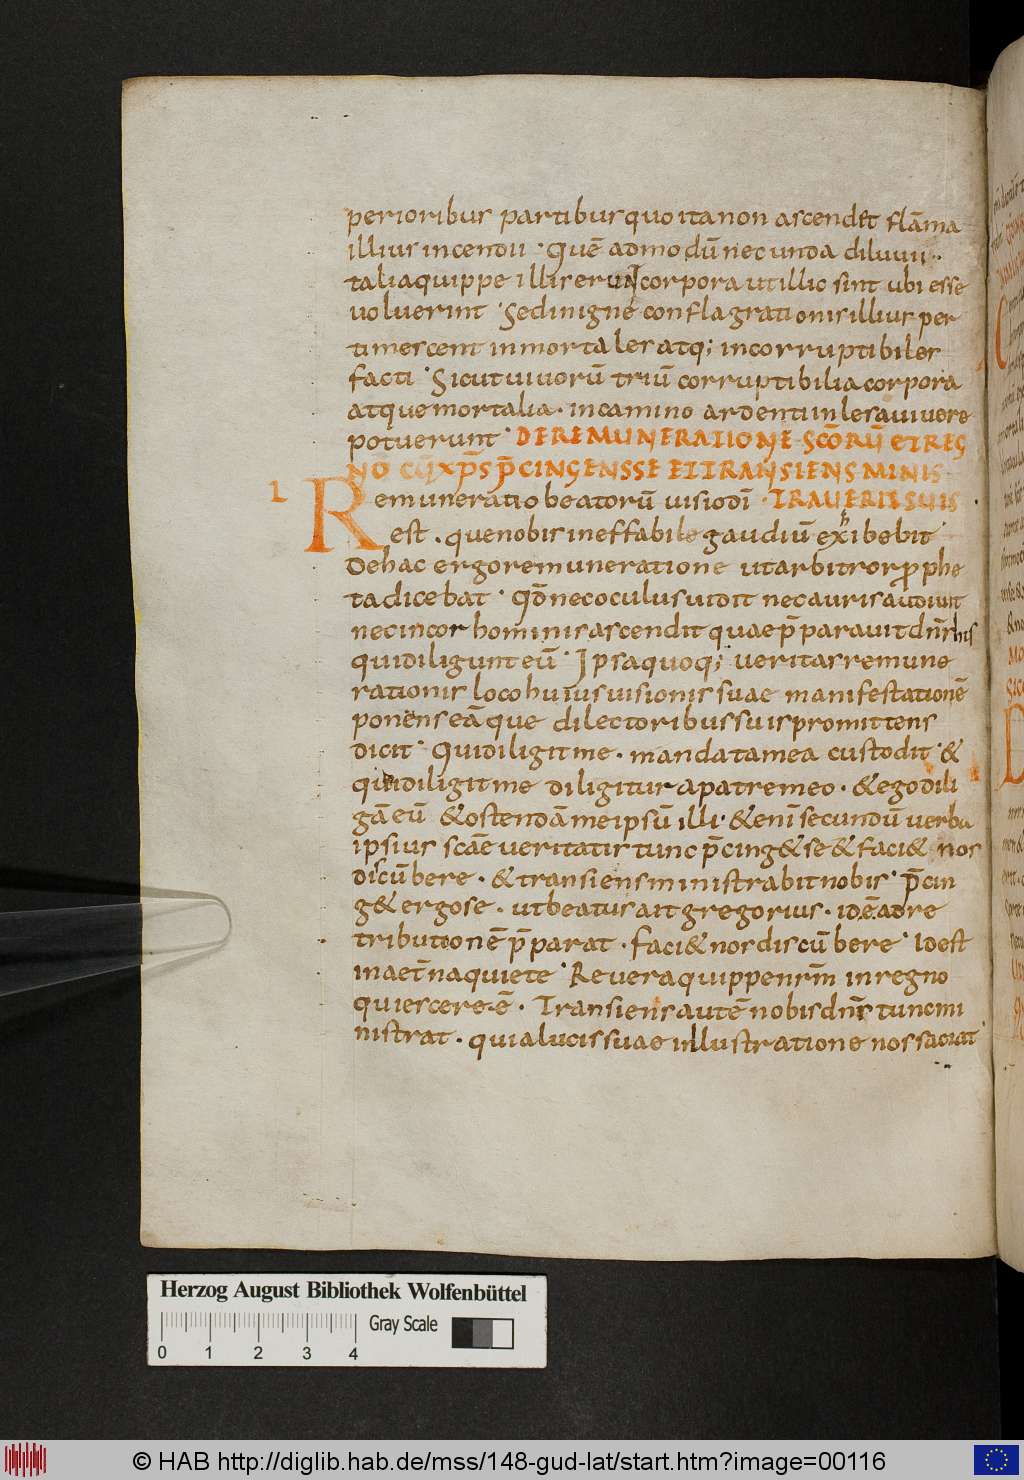 perioribus partibus quo ita non ascendet flāma
illius incendii · Quē admodū nec unda diluuii ··
talia quippe illis erunt corpora ut illic sint ubi esse
uoluerint · Sed in igne conflagrationis illius per
timescent inmortales atq; incorruptibiles
facti · Sicut uiuorū triū corruptibilia corpora
atque mortalia · in camino ardenti inlesa uiuere
potuerunt · DE REMUNERATIONE SCŌRŪ ET REG
NO CŪ XP̄S P̄CINGENS SE ET TRANSIENS MINIS
L Remuneratio beatorū uisio dī · TRAUERIT SUIS ·
est · que nobis ineffabile gaudiū exhibebit
De hac ergo remuneratione ut arbitror ꝓphe
ta dicebat · Qd̄ nec oculus uidit nec auris audiuit
nec in cor hominis ascendit quae p̄parauit dn̄s his
qui diligunt eū · Ipsa quoq; ueritas remune
rationis loco huius uisionis suae manifestationē
ponens eā que dilectoribus suis promittens
dicit · Qui diligit me · mandata mea custodit · &
qui diligit me diligitur a patre meo · & ego dili
gā eū & ostendā me ipsū illi · & enī secundū uerba
ipsius scāe ueritatis tunc p̄cing& se & faci& nos
discūbere · & transiens ministrabit nobis · p̄cin
g& ergo se · ut beatus ait gregorius · id ē ad re
tributionē p̄parat · faci& nos discūbere · id est
in aet̄na quiete · Reuera quippe nr̄m in regno
quiescere ē · Transiens autē nobis dn̄s tunc mi
nistrat · quia lucis suae inllustratione nos saciat ·
Herzog August Bibliothek Wolfenbüttel
0 1 2 3 4 Gray Scale
© HAB http://diglib.hab.de/mss/148-gud-lat/start.htm?image=00116